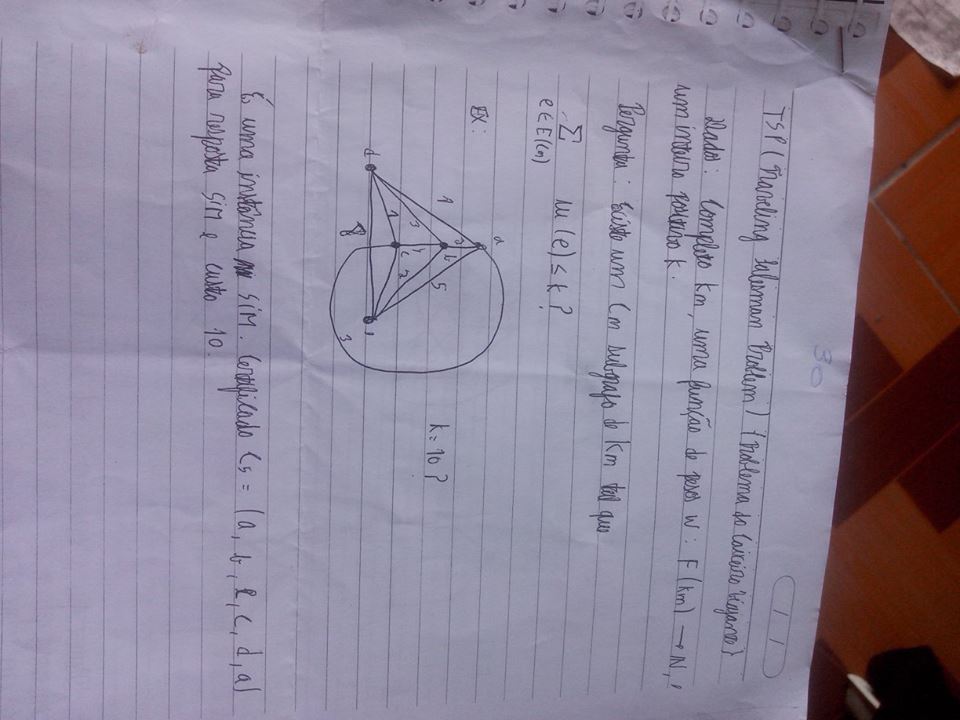 30
TSP (Traveling Salesman Problem) {Problema do Caixeiro Viajante}
Dados: Completo Kn, uma função de pesos W: E(Kn) → N, e
um inteiro positivo k.
Pergunta: Existe um Cn subgrafo de Kn tal que
∑ w(e) ≤ k?
e∈E(Cn)
EX:
k=10?
a
1
3
2
b
5
1
1
c
2
d
8
e
3
É uma instância SIM. Certificado C5 = (a, b, e, c, d, a)
para resposta SIM e custo 10.